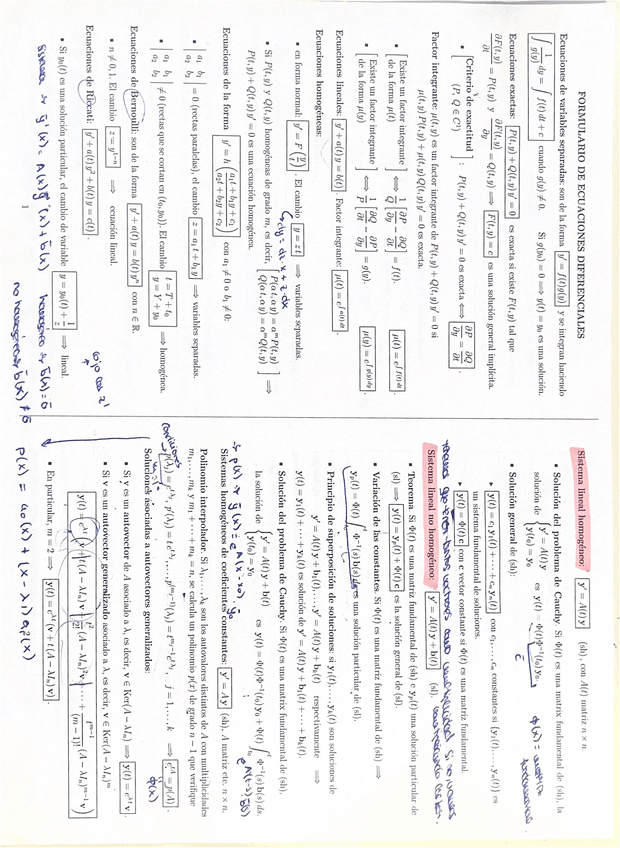 FORMULARIO DE ECUACIONES DIFERENCIALES
Ecuaciones de variables separadas: son de la forma y' = f(t)g(y) y se integran haciendo
∫ 1/g(y) dy = ∫ f(t) dt + c cuando g(y) ≠ 0. Si g(y₀) = 0 ⟹ y(t) = y₀ es una solución.
Ecuaciones exactas: P(t, y) + Q(t, y) y' = 0 es exacta si existe F(t, y) tal que
∂F(t, y)/∂t = P(t, y) y ∂F(t, y)/∂y = Q(t, y) ⟹ F(t, y) = c es una solución general implícita.
▪ [Criterio de exactitud (P, Q ∈ C¹)] : P(t, y) + Q(t, y) y' = 0 es exacta ⟺ ∂P/∂y = ∂Q/∂t
Factor integrante: μ(t, y) es un factor integrante de P(t, y) + Q(t, y) y' = 0 si
μ(t, y)P(t, y) + μ(t, y)Q(t, y) y' = 0 es exacta.
▪ [Existe un factor integrante de la forma μ(t)] ⟺ 1/Q [∂P/∂y − ∂Q/∂t] = f(t). μ(t) = e^∫f(t) dt
▪ [Existe un factor integrante de la forma μ(y)] ⟺ 1/P [∂Q/∂t − ∂P/∂y] = g(y). μ(y) = e^∫g(y) dy
Ecuaciones lineales: y' + a(t) y = b(t) Factor integrante: μ(t) = e^∫a(t) dt
Ecuaciones homogéneas:
▪ en forma normal: y' = F(y/t). El cambio y = z t ⟹ variables separadas.
dy = dz · x + z · dx
▪ Si P(t, y) y Q(t, y) homogéneas de grado m, es decir, [P(a t, a y) = aᵐP(t, y) Q(a t, a y) = aᵐQ(t, y)] ⟹
P(t, y) + Q(t, y) y' = 0 es una ecuación homogénea.
Ecuaciones de la forma y' = h((a₁t + b₁y + c₁)/(a₂t + b₂y + c₂)) con a₁ ≠ 0 o b₁ ≠ 0:
▪ |a₁ b₁ a₂ b₂| = 0 (rectas paralelas), el cambio z = a₁t + b₁y ⟹ variables separadas.
▪ |a₁ b₁ a₂ b₂| ≠ 0 (rectas que se cortan en (t₀, y₀)). El cambio t = T + t₀ y = Y + y₀ ⟹ homogénea.
Ecuaciones de Bernoulli: son de la forma y' + a(t) y = b(t) yⁿ con n ∈ ℝ.
▪ n ≠ 0, 1. El cambio z = y¹⁻ⁿ ⟹ ecuación lineal.
Ecuaciones de Riccati: y' + a(t) y² + b(t) y = c(t).
▪ Si y₀(t) es una solución particular, el cambio de variable y = y₀(t) + 1/z ⟹ lineal.
1
Sistema lineal homogéneo: y' = A(t) y (sh), con A(t) matriz n × n.
▪ Solución del problema de Cauchy. Si Φ(t) es una matriz fundamental de (sh), la
solución de {y' = A(t)y y(t₀) = y₀ es y(t) = Φ(t)Φ⁻¹(t₀) y₀.
▪ Solución general de (sh):
▸ y(t) = c₁ y₁(t) + ··· + cₙ yₙ(t) con c₁, …, cₙ constantes si {y₁(t), …, yₙ(t)} es
un sistema fundamental de soluciones.
▸ y(t) = Φ(t) c con c vector constante si Φ(t) es una matriz fundamental
Sistema lineal no homogéneo: y' = A(t) y + b(t) (sl).
▪ Teorema. Si Φ(t) es una matriz fundamental de (sh) e yₚ(t) una solución particular de
(sl) ⟹ y(t) = yₚ(t) + Φ(t) c es la solución general de (sl).
▪ Variación de las constantes. Si Φ(t) es una matriz fundamental de (sh) ⟹
yₚ(t) = Φ(t) ∫ Φ⁻¹(s) b(s) ds es una solución particular de (sl).
▪ Principio de superposición de soluciones: si y₁(t), …, yₖ(t) son soluciones de
y' = A(t)y + b₁(t), …, y' = A(t)y + bₖ(t) respectivamente ⟹
y(t) = y₁(t) + ··· + yₖ(t) es solución de y' = A(t)y + b₁(t) + ··· + bₖ(t).
▪ Solución del problema de Cauchy. Si Φ(t) es una matriz fundamental de (sh),
la solución de {y' = A(t)y + b(t) y(t₀) = y₀ es y(t) = Φ(t)Φ⁻¹(t₀) y₀ + Φ(t) ∫ Φ⁻¹(s) b(s) ds.
Sistemas homogéneos de coeficientes constantes: y' = Ay (sh), A matriz cte. n × n.
Polinomio interpolador. Si λ₁, …, λₖ son los autovalores distintos de A con multiplicidades
m₁, …, mₖ y m₁ + ··· + mₖ = n, se calcula un polinomio p(x) de grado n − 1 que verifique
p(λⱼ) = e^λⱼt, p'(λⱼ) = t e^λⱼt, …, p^(mⱼ−1)(λⱼ) = t^(mⱼ−1) e^λⱼt, j = 1, …, k ⟹ e^tA = p(A).
Soluciones asociadas a autovectores generalizados:
▪ Si v es un autovector de A asociado a λ, es decir, v ∈ Ker(A − λIₙ) ⟹ y(t) = e^λt v.
▪ Si v es un autovector generalizado asociado a λ, es decir, v ∈ Ker(A − λIₙ)ᵐ
y(t) = e^λt (v + t(A − λIₙ)v + t²/2! (A − λIₙ)²v + ··· + t^(m−1)/(m − 1)! (A − λIₙ)^(m−1) v)
▪ En particular, m = 2 ⟹ y(t) = e^λt (v + t(A − λIₙ)v).
p(x) = a₀(x) + (x − λ₁) a₁(x)